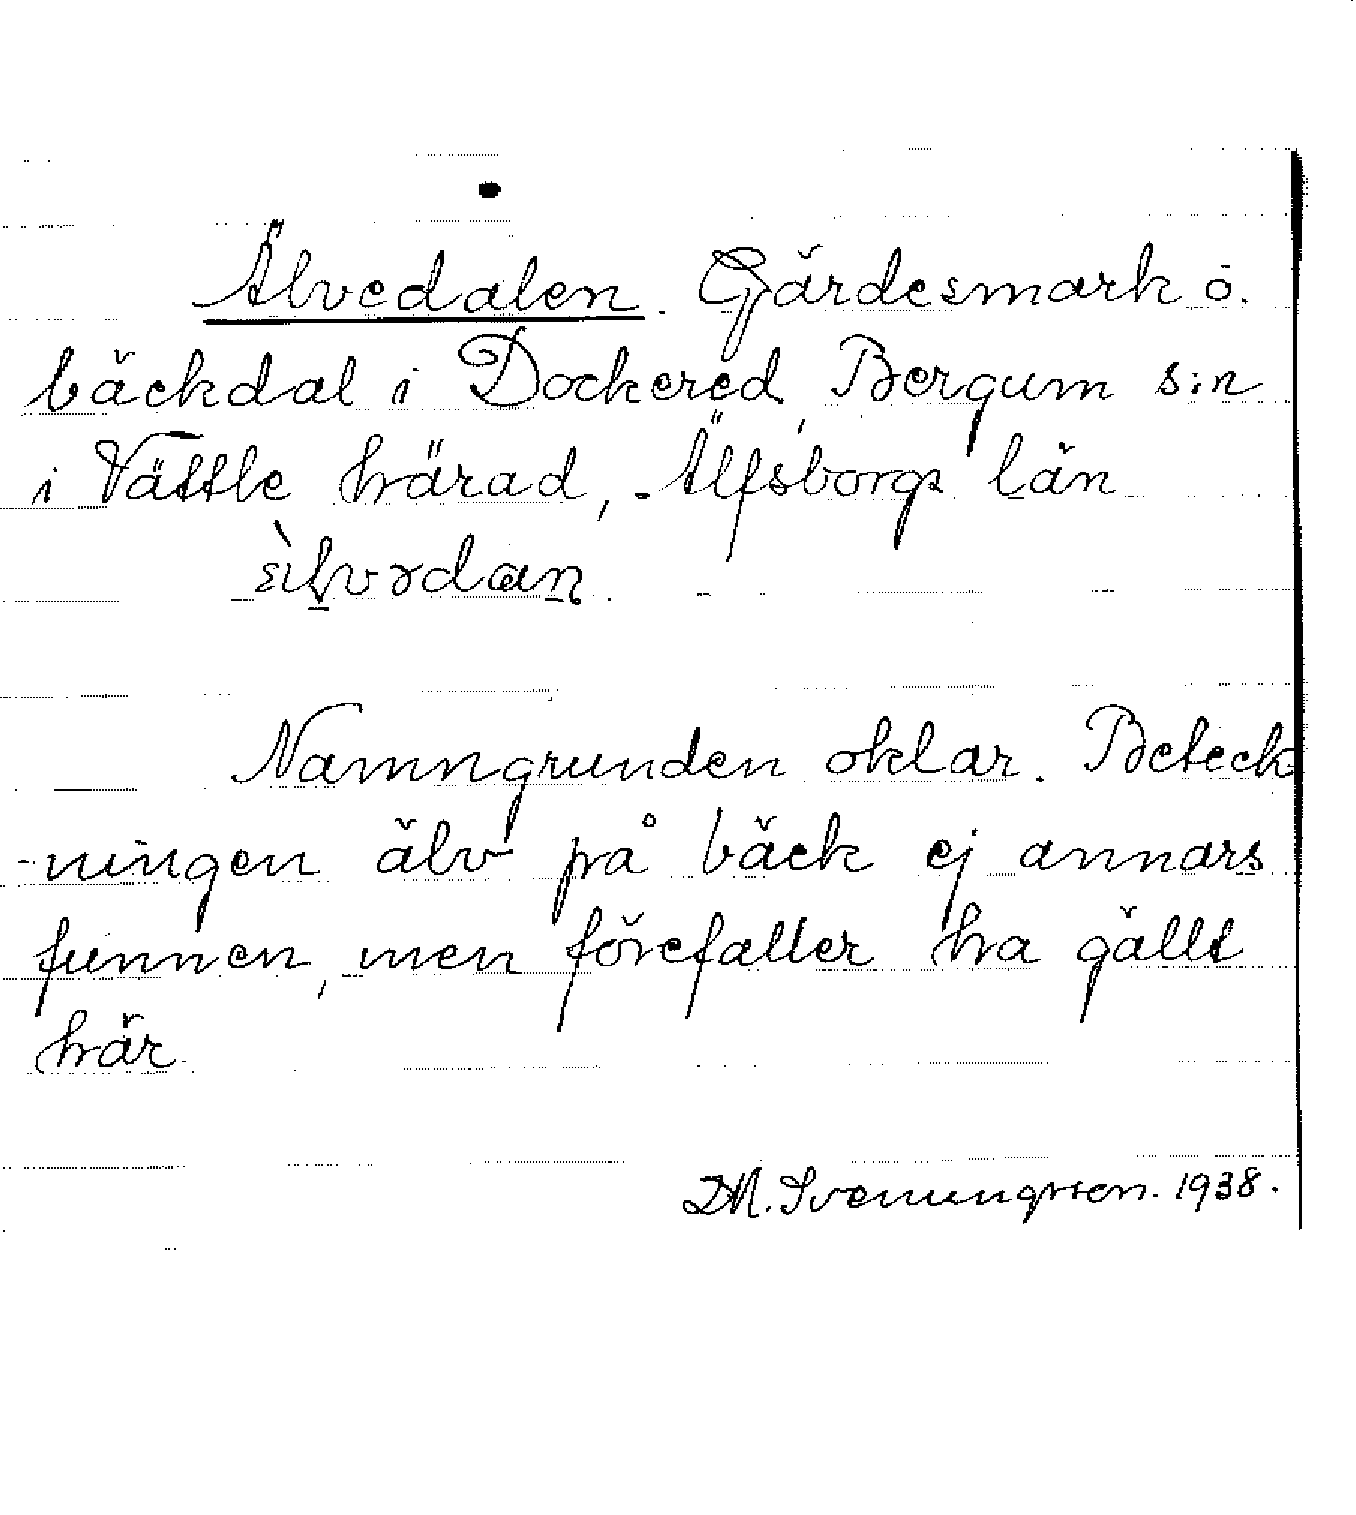 Älvedalen. Gärdesmark o.
bäckdal i Dockered, Bergum s:n
i Vättle härad, Älfsborgs län
Namngrunden oklar. Beteck
-ningen älv på bäck ej annars
funnen, men förefaller ha gällt
här.
D.M. Svenungsson. 1938.